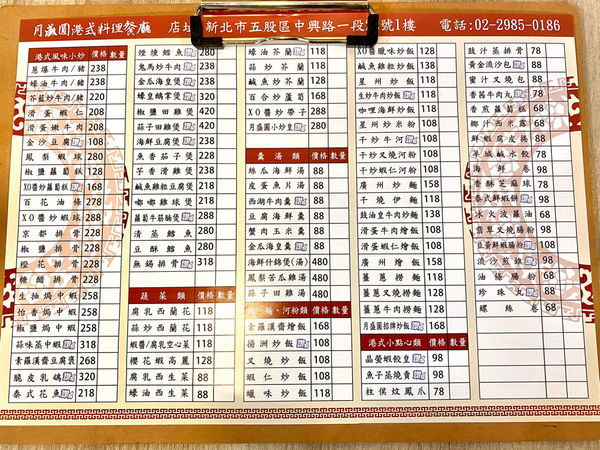 月盛圓港式料理餐廳 店 新北市五股區中興路一段 號1樓 電話:02-2985-0186
港式風味小炒 價格 數量
蔥爆牛肉/豬 238
蠔油牛肉/豬 238
芥藍炒牛肉/豬 220
滑蛋蝦仁 208
滑蛋嫩牛肉 208
金沙豆腐 108
鳳梨蝦球 280
椒鹽薯條 128
XO醬炒蘿蔔糕 168
百花油條 278
XO醬炒蝦球 288
京都排骨 228
椒鹽排骨 228
橙花排骨 228
糖醋排骨 228
生抽焗中蝦 318
怡香焗中蝦 318
椒鹽焗中蝦 318
蒜味蒸中蝦 318
素羅漢齋豆腐煲 268
脆皮乳鴿 320
滷味拼盤 218
煙燻鯧魚 280
鬼馬炒牛肉 280
金瓜海皇煲 280
蠔皇鵝掌煲 320
椒鹽田雞煲 420
蒜子田雞煲 420
海鮮豆腐煲 288
魚香茄子煲 228
芋香滑雞煲 288
鹹魚雞粒豆腐煲 218
蘿蔔牛筋腩煲 288
清蒸鱈魚 250
豆酥鱈魚 280
無錫排骨 318
蔬菜類 價格 數量
腐乳西蘭花 118
蒜炒西蘭花 118
蝦醬/腐乳空心菜 118
櫻花蝦高麗 128
腐乳西生菜 88
蠔油西生菜 88
蠔油芥蘭 118
蒜炒芥蘭 118
鹹魚炒芥蘭 128
百合炒蘆筍 168
XO醬炒帶子 288
月盛圓小炒皇 280
羹湯類 價格 數量
絲瓜海鮮湯 88
皮蛋魚片湯 88
西湖牛肉羹 88
豆腐海鮮羹 88
蟹肉玉米羹 88
金瓜海皇羹 88
海鮮什錦煲 480
鳳梨苦瓜雞湯 480
蒜子田雞湯 480
麵、河粉類 價格 數量
素羅漢齋燴飯 168
揚洲炒飯 108
叉燒炒飯 108
蝦仁炒飯 108
蠟味炒飯 168
XO醬臘味炒飯 188
鹹魚雞粒炒飯 138
星州炒飯 118
生炒牛肉炒飯 118
咖哩海鮮炒飯 158
星州炒米粉 108
干炒牛河 118
干炒叉燒河粉 108
干炒蝦仁河粉 108
廣州炒麵 158
干燒伊麵 158
豉油皇牛肉炒麵 118
滑蛋牛肉燴飯 108
滑蛋蝦仁燴飯 108
廣州燴飯 158
薑蔥撈麵 118
薑蔥叉燒撈麵 128
薑蔥牛肉撈麵 128
月盛圓招牌炒飯 168
港式小點心類 價格 數量
晶瑩蝦餃皇 98
魚子蒸燒賣 98
柱侯炆鳳爪 78
豉汁蒸排骨 78
黃金流沙包 88
蜜汁叉燒包 88
香茜牛肉丸 78
香煎蘿蔔糕 68
椰汁西米露 68
鮮蝦腐皮捲 88
城鹹水餃 78
海鮮卷 98
香酥芝麻球 78
泰式鮮蝦餅 98
冰火波蘿油 68
翡翠叉燒腸粉 98
韭黃鮮蝦腸粉 108
流沙煎堆 98
油條腸粉 68
珍珠丸 88
螺絲卷 68